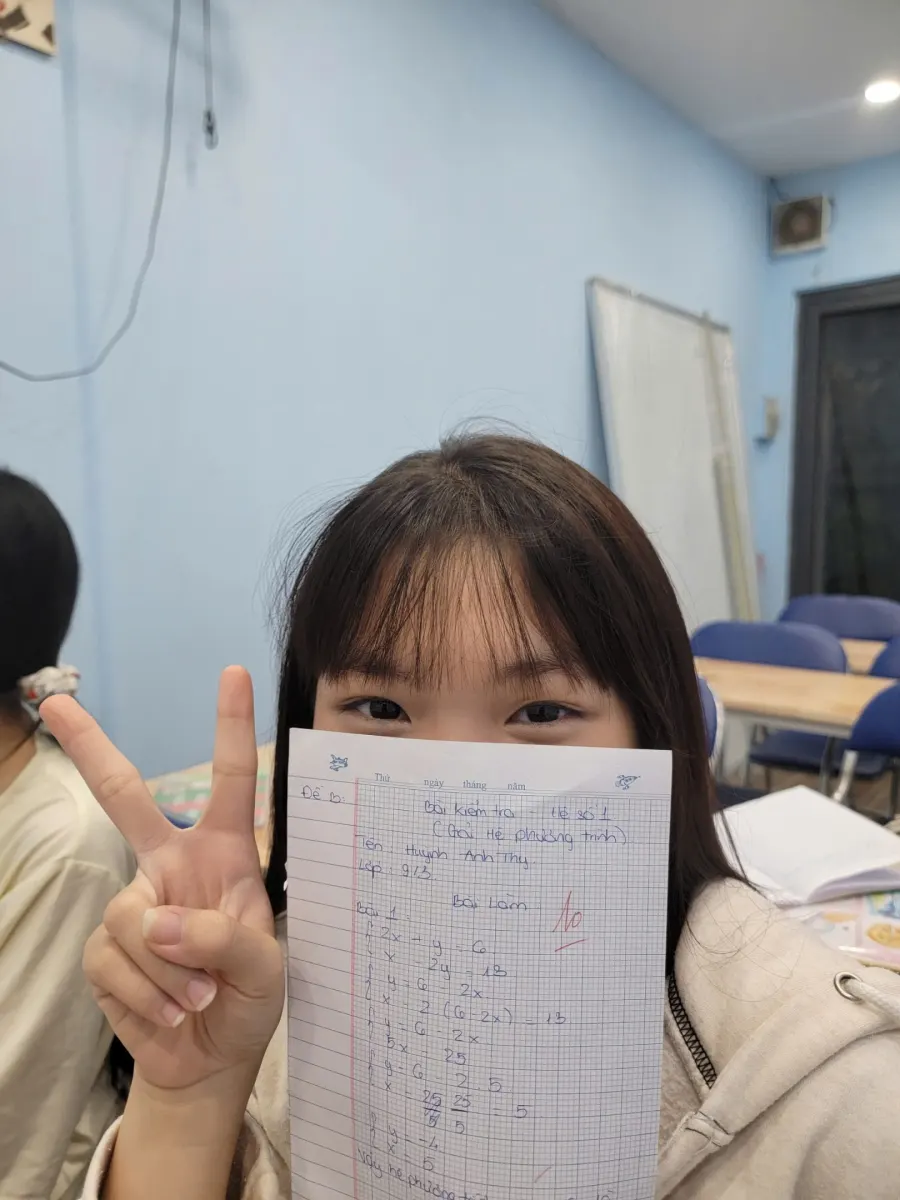 Thứ ngày tháng năm
Đề B:
Bài kiểm tra - Hệ số 1
(Giải Hệ phương trình)
Tên: Huỳnh Anh Thy
Lớp: 9/3
Bài Làm
10
Bài 1:
{ 2x - y = 6
{ x 2y = 13
{ y = 6 - 2x
{ x 2 (6-2x) = 13
{ y = 6 - 2x
{ 5x 25
{ y = 6 2 . 5
{ x = 25/5 25/5 = 5
{ y = -4
{ x = 5
Vậy hệ phương